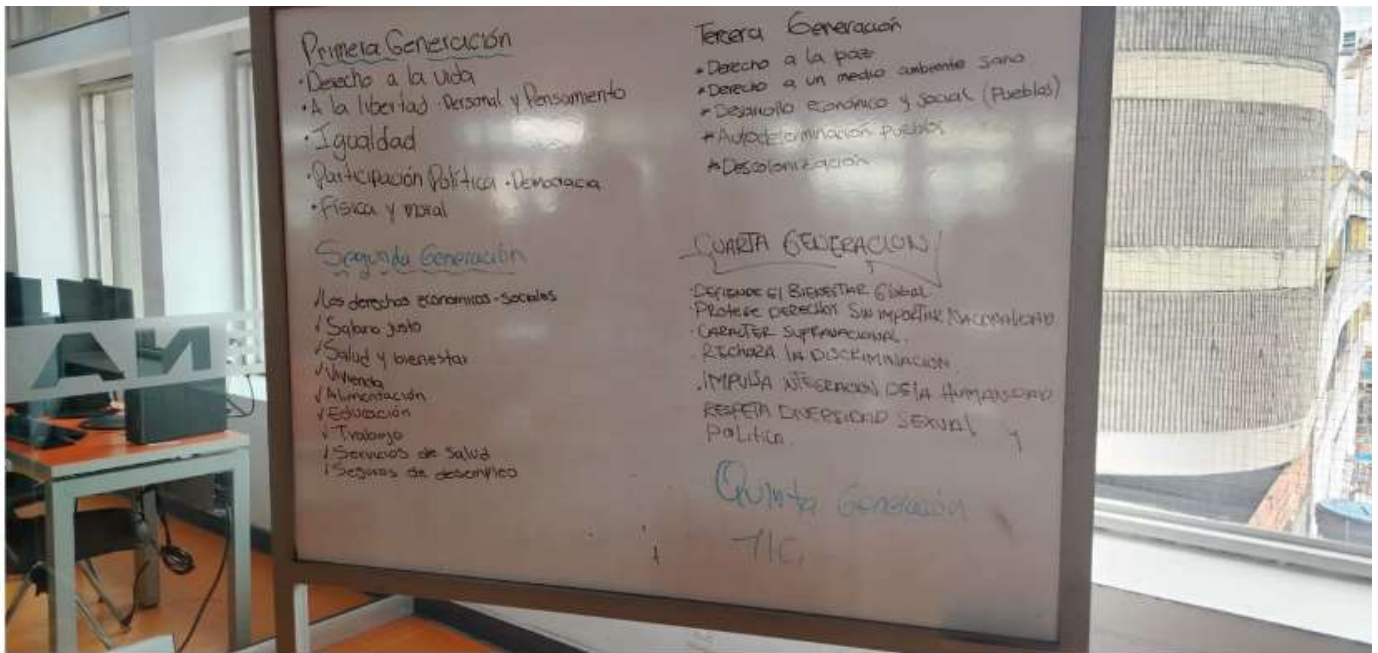 Primera Generación
• Derecho a la vida
• A la libertad Personal y Pensamiento
• Igualdad
• Participación Política • Democracia
• Física y moral
Segunda Generación
✓ Los derechos economicos - sociales
✓ Salario justo
✓ Salud y bienestar
✓ Vivienda
✓ Alimentación
✓ Educación
✓ Trabajo
✓ Servicios de Salud
✓ Seguros de desempleo
Tercera Generación
* Derecho a la paz
* Derecho a un medio ambiente sano
* Desarrollo económico y social (Pueblos)
* Autodeterminación pueblos
* Descolonización
CUARTA GENERACION
• DEFIENDE El BIENESTAR GlObAL
• PROtEGE DERECHOS SIN IMPORTAR NACIONALIDAD
• CARACTER SUPRANACIONAL.
• RECHAZA lA DISCRIMINACION
• IMPULSA INTEGRACION DE lA HUMANIDAD
RESPETA DIVERSIDAD SEXUAL Y
POLítica.
Quinta Generación
TIC.
NA